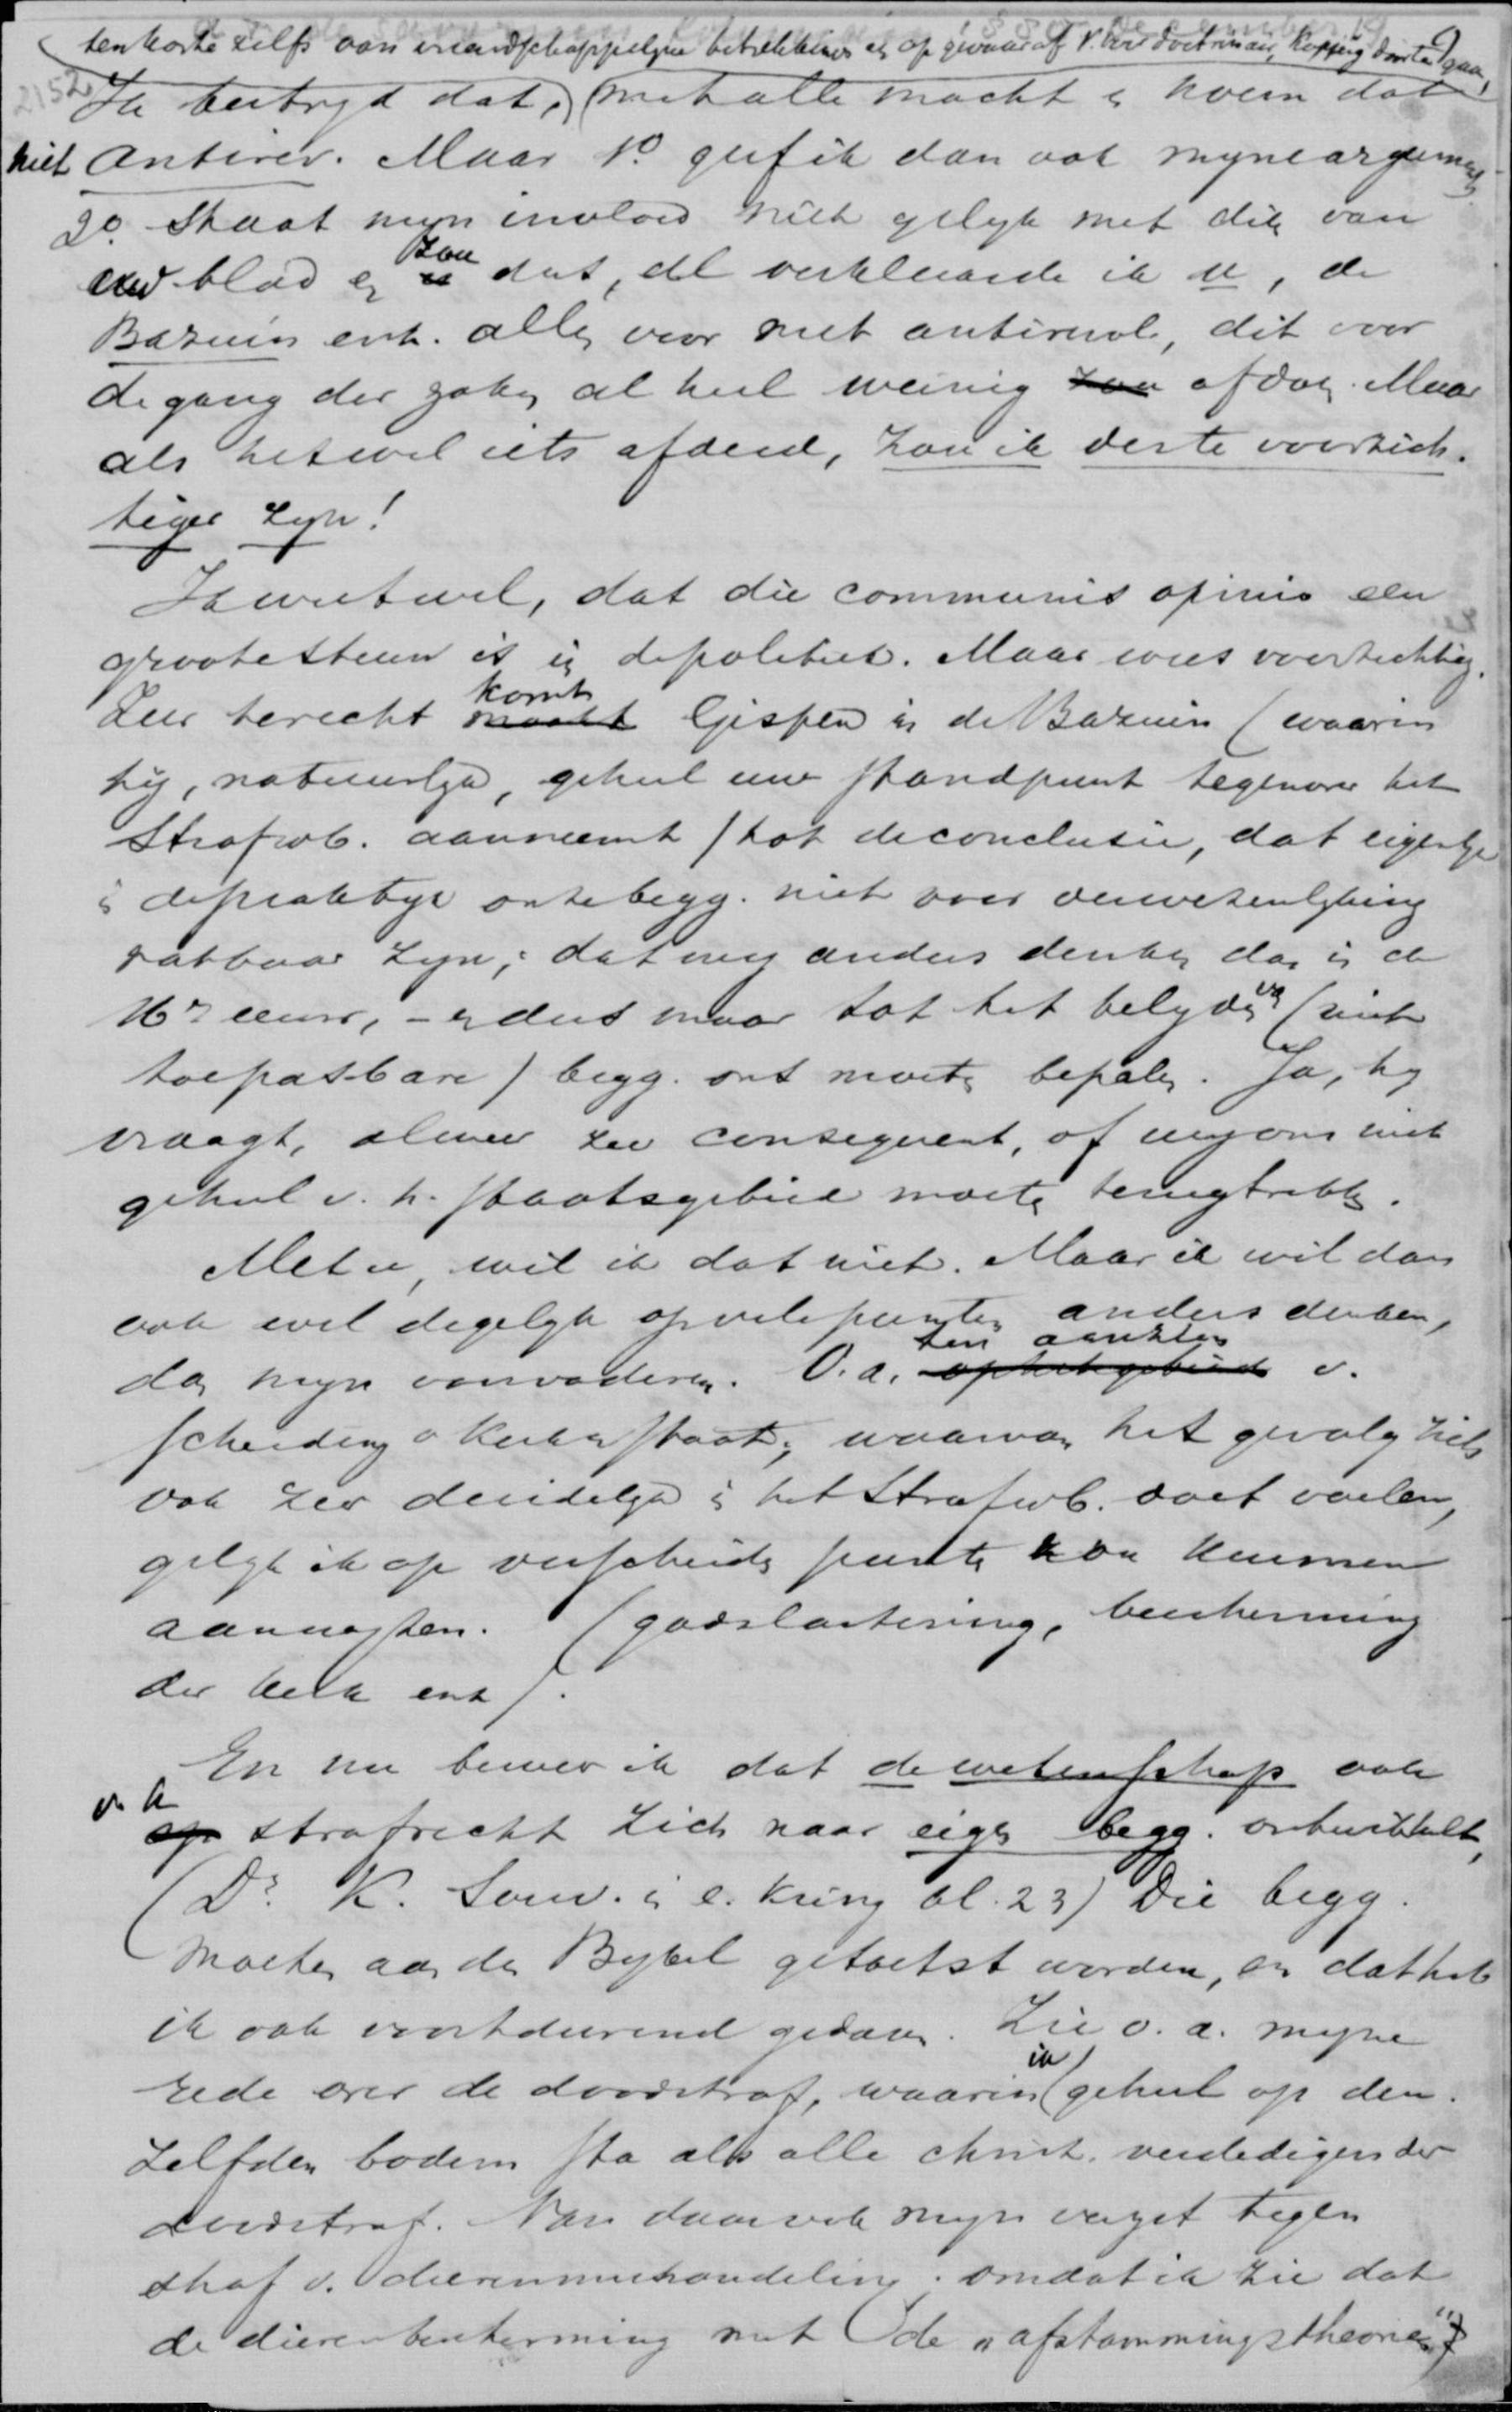 ten koste zelfs van vriendschappelyke betrekkingen en op gevaar af v. voor doctrinair, koppig door te gaan,
2152
Ik bestryd dat, met alle macht en noem dat
niet antirev. Maar 1o geef ik dan ook myne argumenten
2o. staat myn invloed niet gelyk met die van
uw blad en zou dat, al verklaarde ik u, de
Bazuin enz. alles voor niet antirevol, dit voor
de gang der zaken al heel weinig zou afdoen. Maar
als het wel iets afdeed, zou ik des te voorzich-
tiger zyn!
Ik weet wel, dat die communis opinio een
groote steun is in de politiek. Maar wees voorzichtig.
Zeer terecht komt Gispen in de Bazuin (waarin
hij, natuurlyk, geheel uw standpunt tegenover het
Strafwb. aanneemt) tot de conclusie, dat eigenlyk
in de praktyk onze begg. niet voor verwezenlyking
vatbaar zyn; dat wy anders denken dan in de
16e eeuw, - en dus maar tot het belyden van (niet
toepasbare) begg. ons moeten bepalen. Ja, hy
vraagt, alweer zeer consequent, of wy ons niet
geheel v. h. staatsgebied moeten terugtrekken.
Met u, wil ik dat niet. Maar ik wil dan
ook wel degelyk op vele punten anders denken,
dan myn voorvaderen. O.a. ten aanzien op het gebied v.
scheiding v kerk en staat; waarvan het gevolg zich
ook zeer duidelyk in het Strafwb. doet voelen,
gelyk ik op verscheiden punten zou kunnen
aanwyzen. (godslastering, bescherming
der kerk enz).
En nu beweer ik dat de wetenschap ook
v. h. op strafrecht zich naar eigen begg. ontwikkelt,
(Dr. K. Souv. in e. kring bl. 23) Die begg.
moeten aan den Bybel getoetst worden, en dat heb
ik ook voortdurend gedaan. Zie o.a. myne
rede over de doodstraf, waarin ik geheel op den-
zelfden bodem sta als alle christ. verdedigers der
doodstraf. Van daar ook myn verzet tegen
straf v. dierenmishandeling; omdat ik zie dat
de dierenbescherming met de "afstammingstheorie"